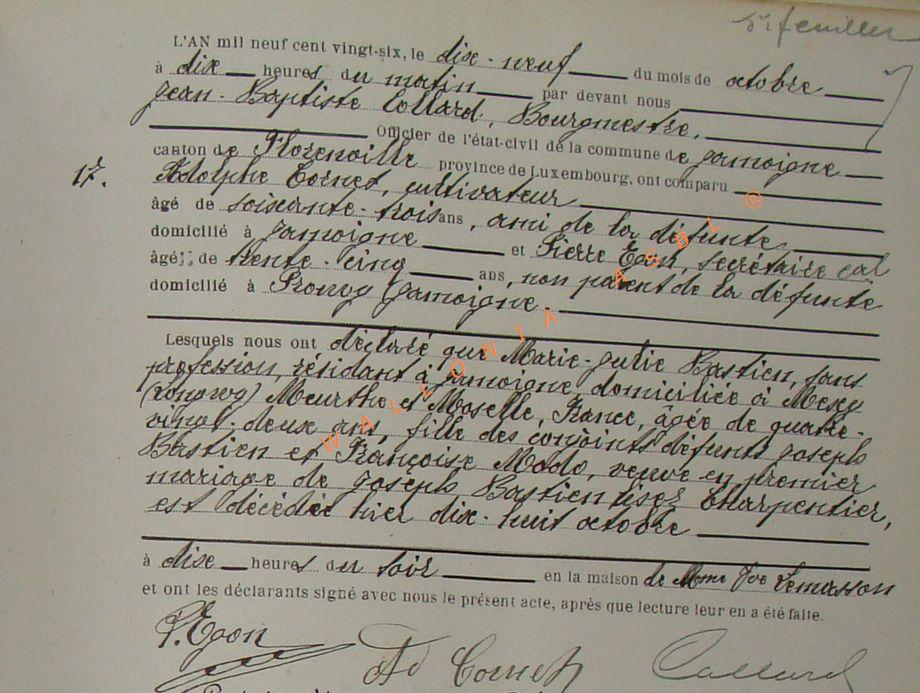 feuillet
L'AN mil neuf cent vingt-six, le dix-neuf du mois de octobre
à dix heures du matin par devant nous
Jean-Baptiste Collard, Bourgmestre,
Officier de l'état-civil de la commune de Jamoigne
canton de Florenville province de Luxembourg, ont comparu
17.
Adolphe Cornet, cultivateur
âgé de soixante-trois ans, ami de la défunte
domicilié à Jamoigne et Pierre Egon, secrétaire cal
âgé de trente-cinq ans, non parent de la défunte
domicilié à Prouvy Jamoigne.
Lesquels nous ont déclaré que Marie-Julie Bastien, sans
profession, résidant à Jamoigne, domiciliée à Mexy
Meurthe et Moselle, France, âgée de quatre-
vingt-deux ans, fille des conjoints défunts Joseph
Bastien et Françoise Modo, veuve en premier
mariage de Joseph Bastien Charpentier,
est décédée hier dix-huit octobre
à dix heures du soir en la maison de Mme Vve Lemasson
et ont les déclarants signé avec nous le présent acte, après que lecture leur en a été faite.
P. Egon
Ad Cornet
Collard
WALLONIA ASBL ®